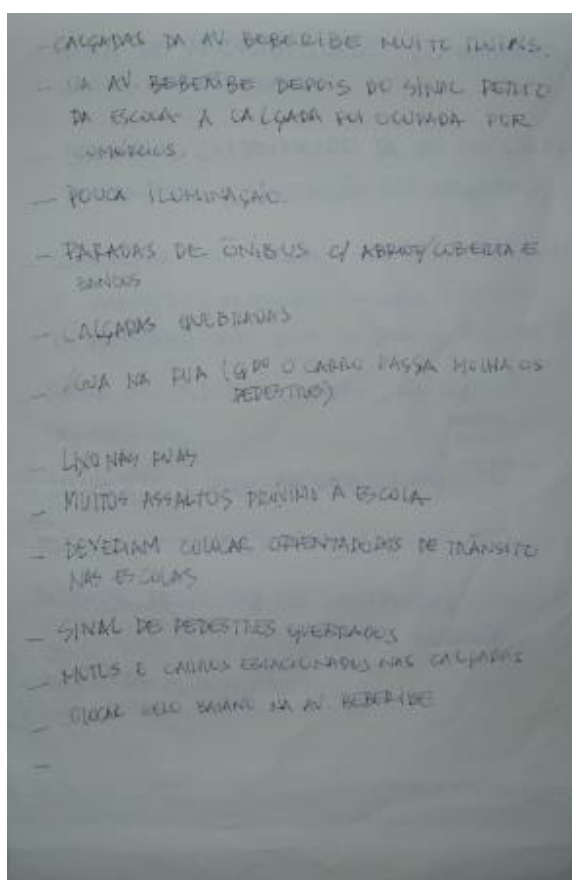 - CALÇADAS DA AV. BEBERIBE MUITO RUINS.
- NA AV. BEBERIBE DEPOIS DO SINAL PERTO
DA ESCOLA A CALÇADA FOI OCUPADA POR
COMÉRCIOS.
- POUCA ILUMINAÇÃO.
- PARADAS DE ÔNIBUS C/ ABRIGO/COBERTA E
BANCOS
- CALÇADAS QUEBRADAS
- ÁGUA NA RUA (QDO O CARRO PASSA MOLHA OS
PEDESTRES)
- LIXO NAS RUAS
- MUITOS ASSALTOS PRÓXIMO À ESCOLA
- DEVERIAM COLOCAR ORIENTADORES DE TRÂNSITO
NAS ESCOLAS
- SINAL DE PEDESTRES QUEBRADOS
- MOTOS E CARROS ESTACIONADOS NAS CALÇADAS
- COLOCAR GELO BAIANO NA AV. BEBERIBE
-